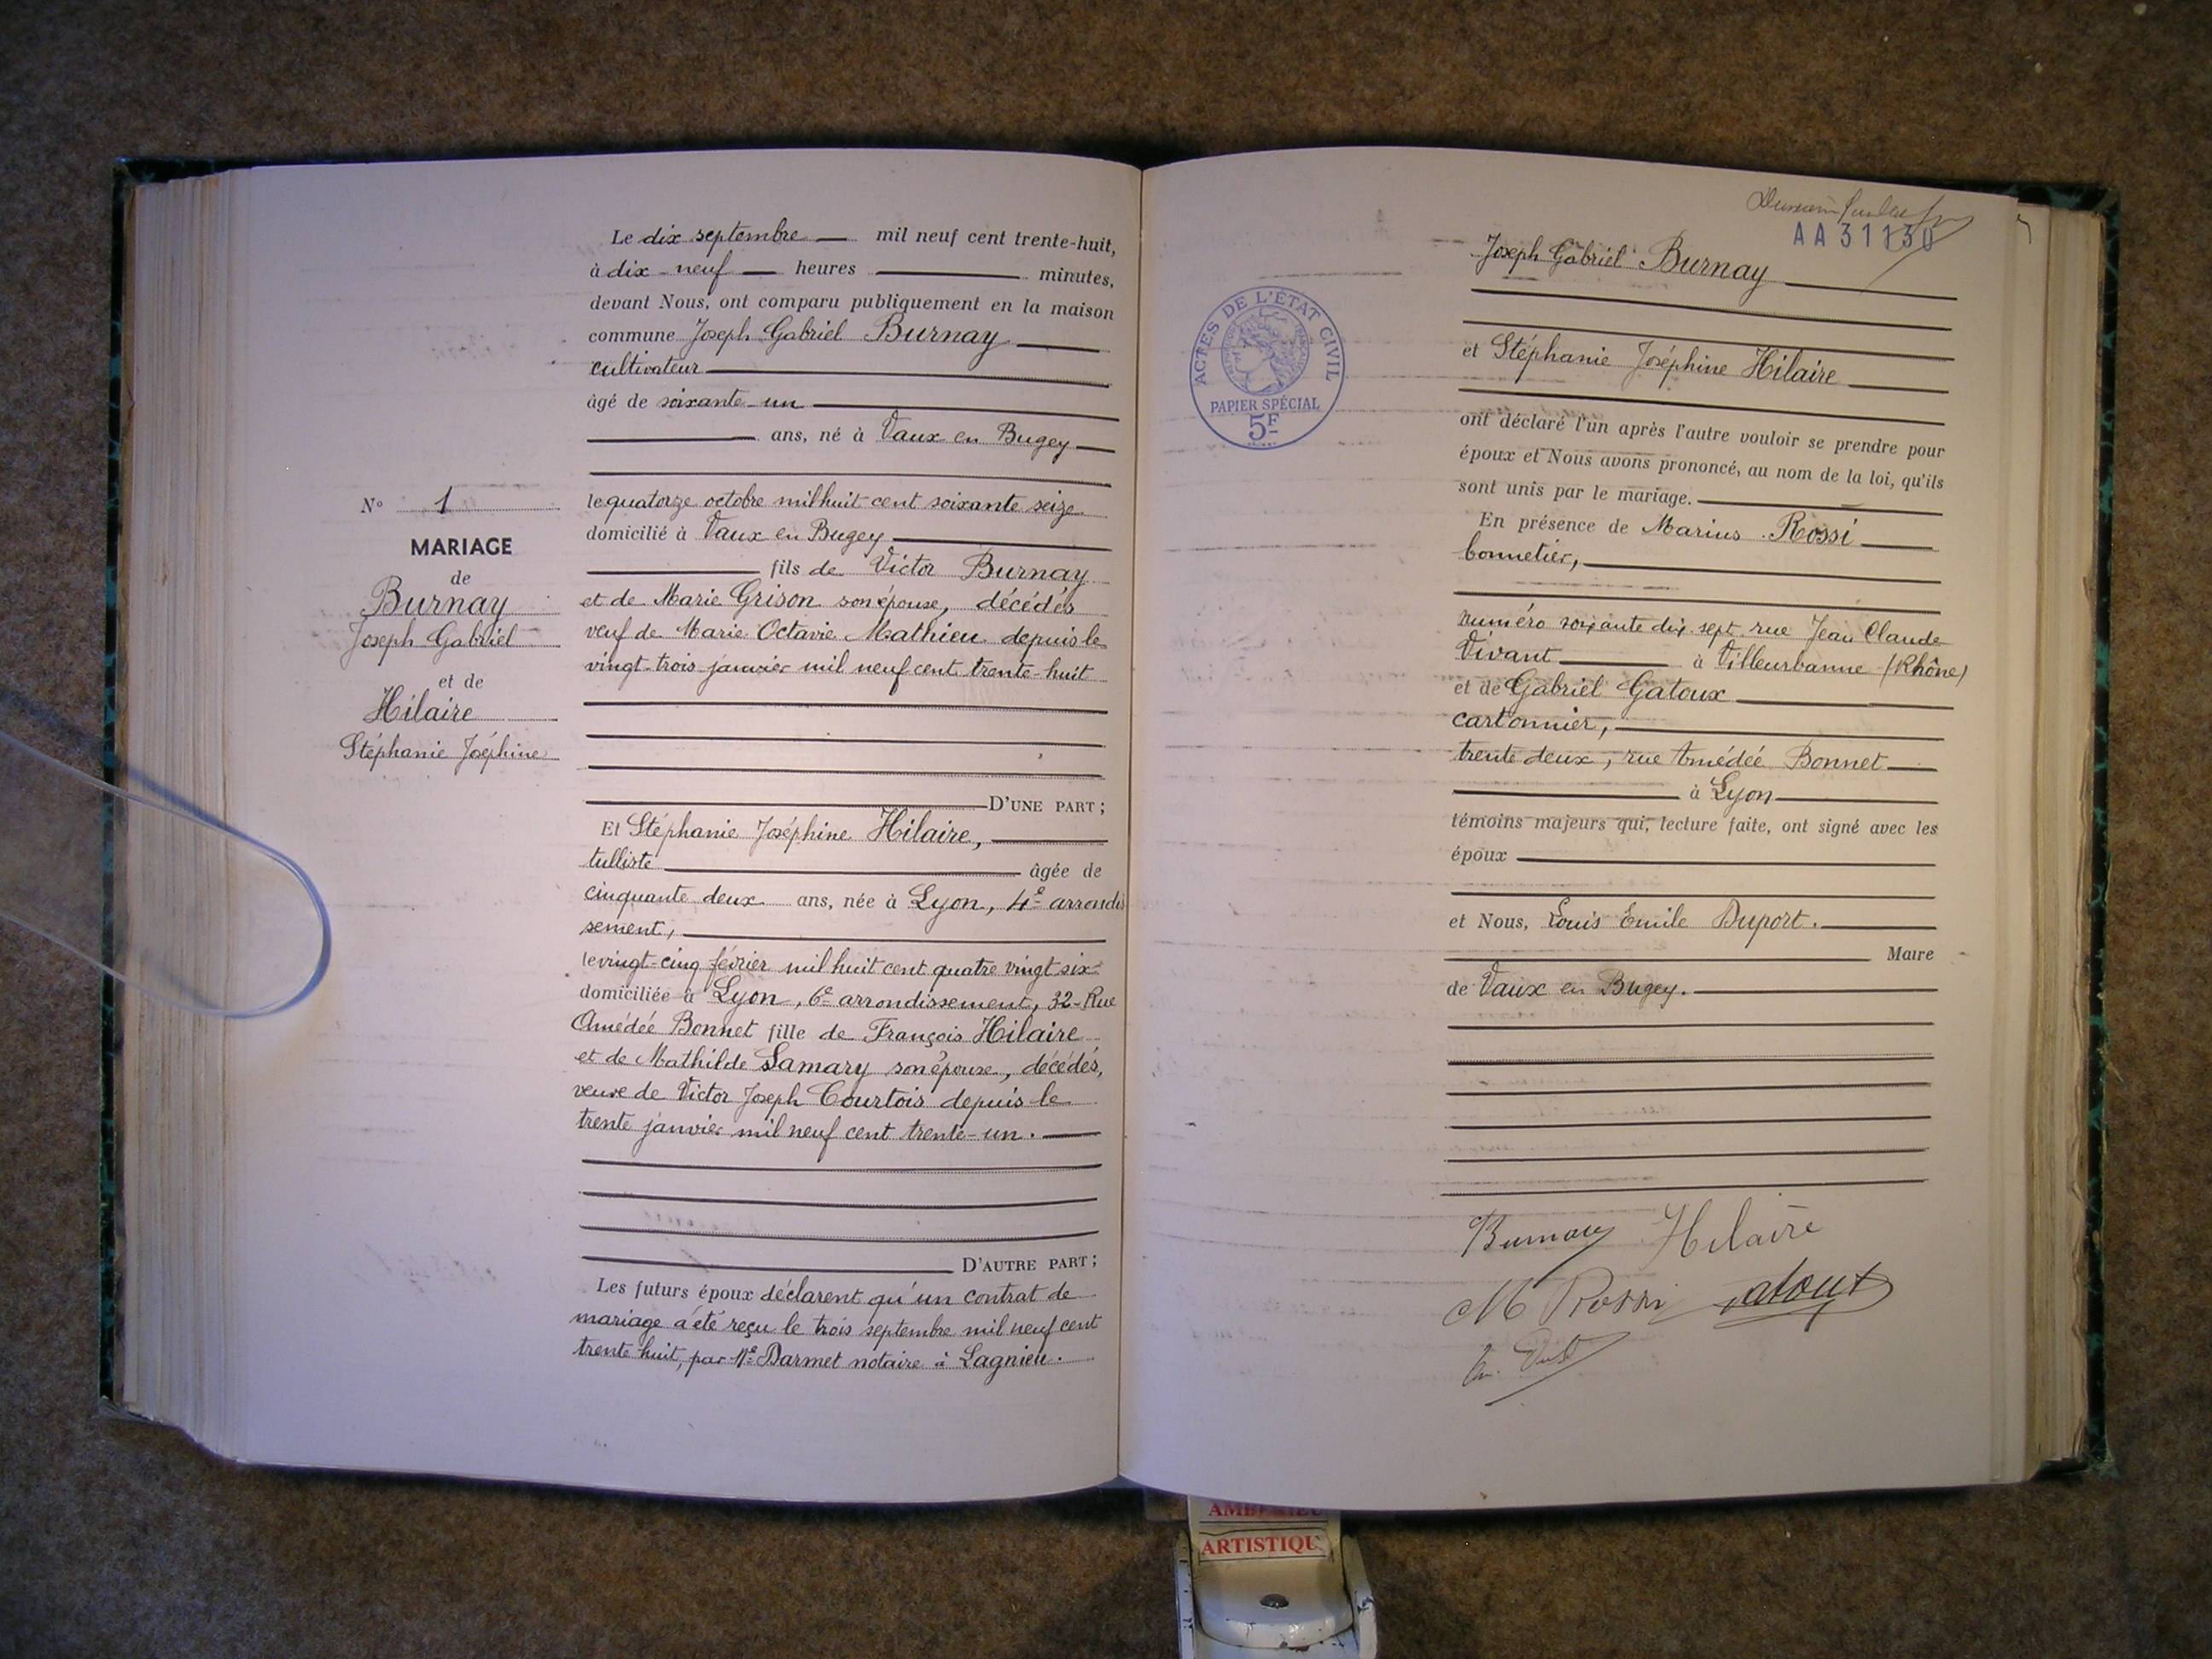 Le dix septembre mil neuf cent trente-huit,
à dix-neuf heures minutes,
devant Nous, ont comparu publiquement en la maison
commune Joseph Gabriel Burnay
cultivateur
âgé de soixante-un
ans, né à Vaux en Bugey
le quatorze octobre mil huit cent soixante seize
domicilié à Vaux en Bugey
fils de Victor Burnay
et de Marie Grison son épouse, décédés
veuf de Marie Octavie Mathieu depuis le
vingt-trois janvier mil neuf cent trente-huit
D'UNE PART ;
Et Stéphanie Joséphine Hilaire,
tulliste âgée de
cinquante deux ans, née à Lyon, 4e arrondis
sement,
le vingt-cinq février mil huit cent quatre vingt six
domiciliée à Lyon, 6e arrondissement, 32-Rue
Amédée Bonnet fille de François Hilaire
et de Mathilde Samary son épouse, décédés,
veuve de Victor Joseph Courtois depuis le
trente janvier mil neuf cent trente-un.
D'AUTRE PART ;
Les futurs époux déclarent qu'un contrat de
mariage a été reçu le trois septembre mil neuf cent
trente huit, par Me Darmet notaire à Lagnieu.
No 1
MARIAGE
de
Burnay
Joseph Gabriel
et de
Hilaire
Stéphanie Joséphine
AA 31130
ACTES DE L'ÉTAT CIVIL
PAPIER SPÉCIAL
5F
Joseph Gabriel Burnay
et Stéphanie Joséphine Hilaire
ont déclaré l'un après l'autre vouloir se prendre pour
époux et Nous avons prononcé, au nom de la loi, qu'ils
sont unis par le mariage.
En présence de Marius Rossi
bonnetier,
numéro soixante dix-sept rue Jean Claude
Vivant à Villeurbanne (Rhône)
et de Gabriel Gatoux
cartonnier,
trente deux, rue Amédée Bonnet
à Lyon
témoins majeurs qui, lecture faite, ont signé avec les
époux
et Nous, Louis Emile Duport.
Maire
de Vaux en Bugey.
Burnay Hilaire
M Rossi Gatoux
AMBERIEU
ARTISTIQU